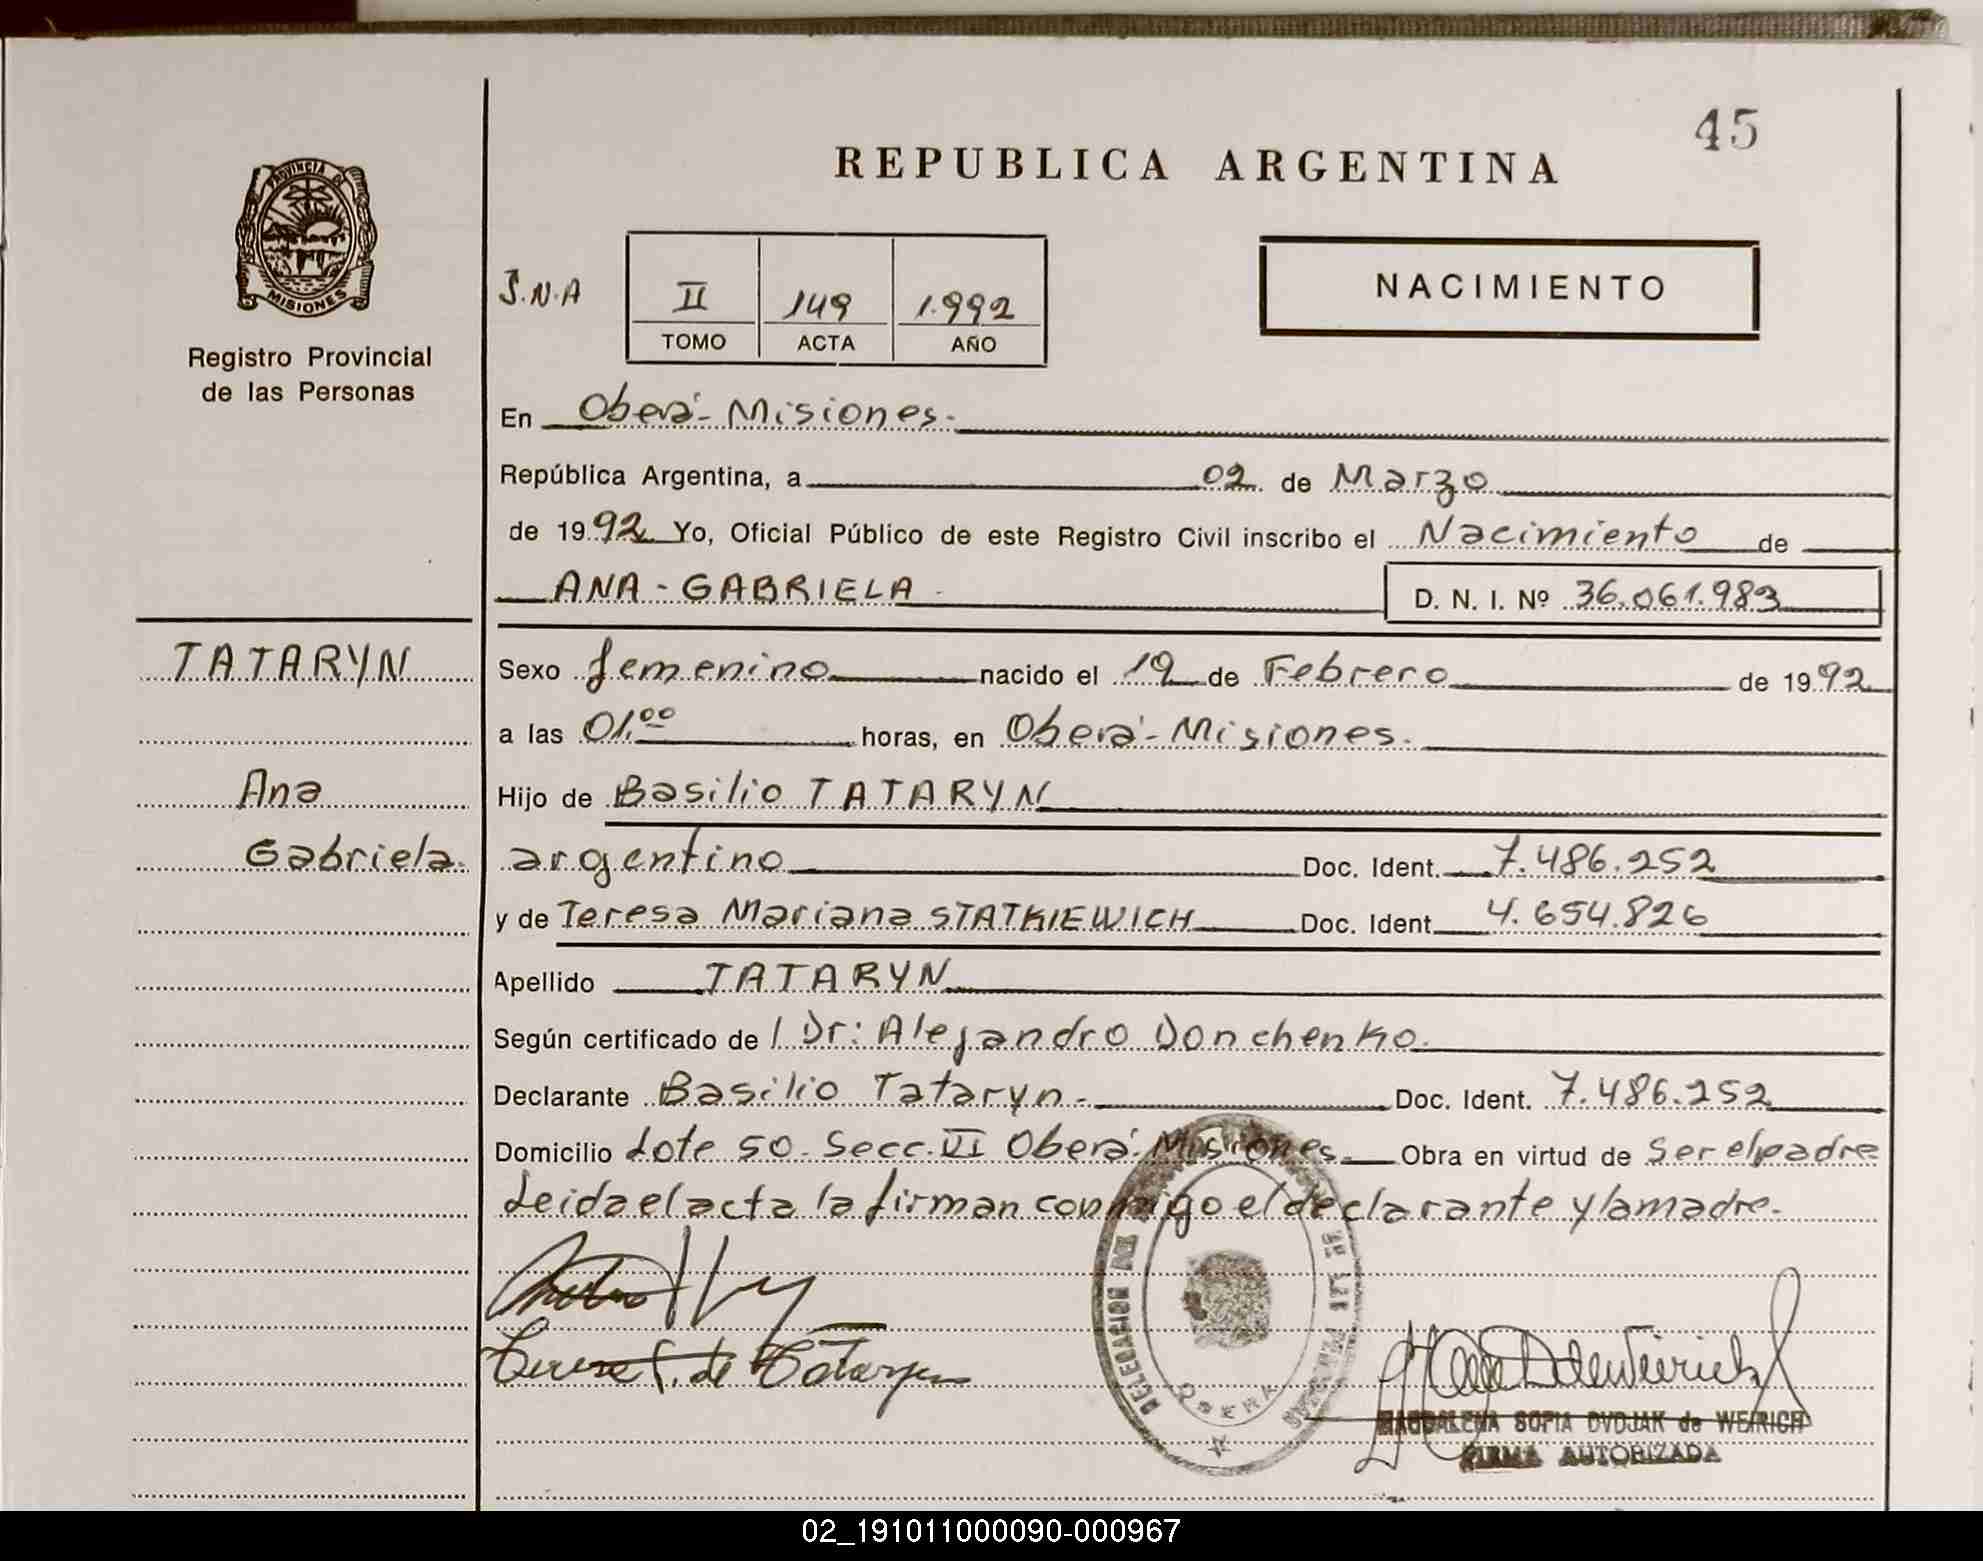 45
REPUBLICA ARGENTINA
PROVINCIA DE
MISIONES
Registro Provincial
de las Personas
S.N.A
II 149 1.992
TOMO ACTA AÑO
NACIMIENTO
En Oberá - Misiones.
República Argentina, a 02 de Marzo
de 1992 Yo, Oficial Público de este Registro Civil inscribo el Nacimiento de
ANA - GABRIELA - D. N. I. Nº 36.061.983
TATARYN
Ana
Gabriela.
Sexo femenino nacido el 19 de Febrero de 1992
a las 01.00 horas, en Oberá - Misiones.
Hijo de Basilio TATARYN
argentino Doc. Ident. 7.486.252
y de Teresa Mariana STATKIEWICH Doc. Ident. 4.654.826
Apellido TATARYN
Según certificado de l Dr: Alejandro Donchenko.
Declarante Basilio Tataryn - Doc. Ident. 7.486.252
Domicilio Lote 50 - Secc. VI Oberá - Misiones. Obra en virtud de ser el padre
Leida el acta la firman conmigo el declarante y la madre.
Teresa S. de Tataryn
DELEGACION DE LAS PERSONAS
OBERA
MAGDALENA SOFIA DVOJAK de WEIRICH
FIRMA AUTORIZADA
02_191011000090-000967